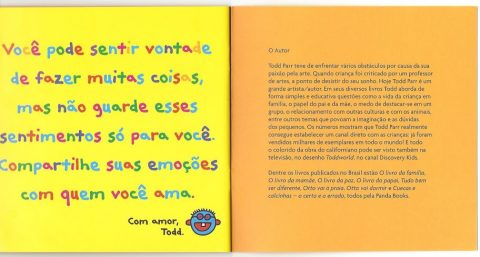 Você pode sentir vontade
de fazer muitas coisas,
mas não guarde esses
sentimentos só para você.
Compartilhe suas emoções
com quem você ama.
Com amor,
Todd.
O Autor
Todd Parr teve de enfrentar vários obstáculos por causa da sua
paixão pela arte. Quando criança foi criticado por um professor
de artes, a ponto de desistir do seu sonho. Hoje Todd Parr é um
grande artista/autor. Em seus diversos livros Todd aborda de
forma simples e educativa questões como a vida da criança em
família, o papel do pai e da mãe, o medo de destacar-se em um
grupo, o relacionamento com outras culturas e com os animais,
entre outros temas que povoam a imaginação e as dúvidas
dos pequenos. Os números mostram que Todd Parr realmente
consegue estabelecer um canal direto com as crianças: já foram
vendidos milhares de exemplares em todo o mundo! E todo
o colorido da obra do californiano pode ser visto também na
televisão, no desenho Toddworld, no canal Discovery Kids.
Dentre os livros publicados no Brasil estão O livro da família,
O livro da mamãe, O livro da paz, O livro do papai, Tudo bem
ser diferente, Otto vai à praia, Otto vai dormir e Cuecas e
calcinhas – o certo e o errado, todos pela Panda Books.